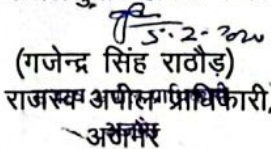 5.2.2020
(गजेन्द्र सिंह राठौड़)
राजस्व अपील प्राधिकारी,
अजमेर